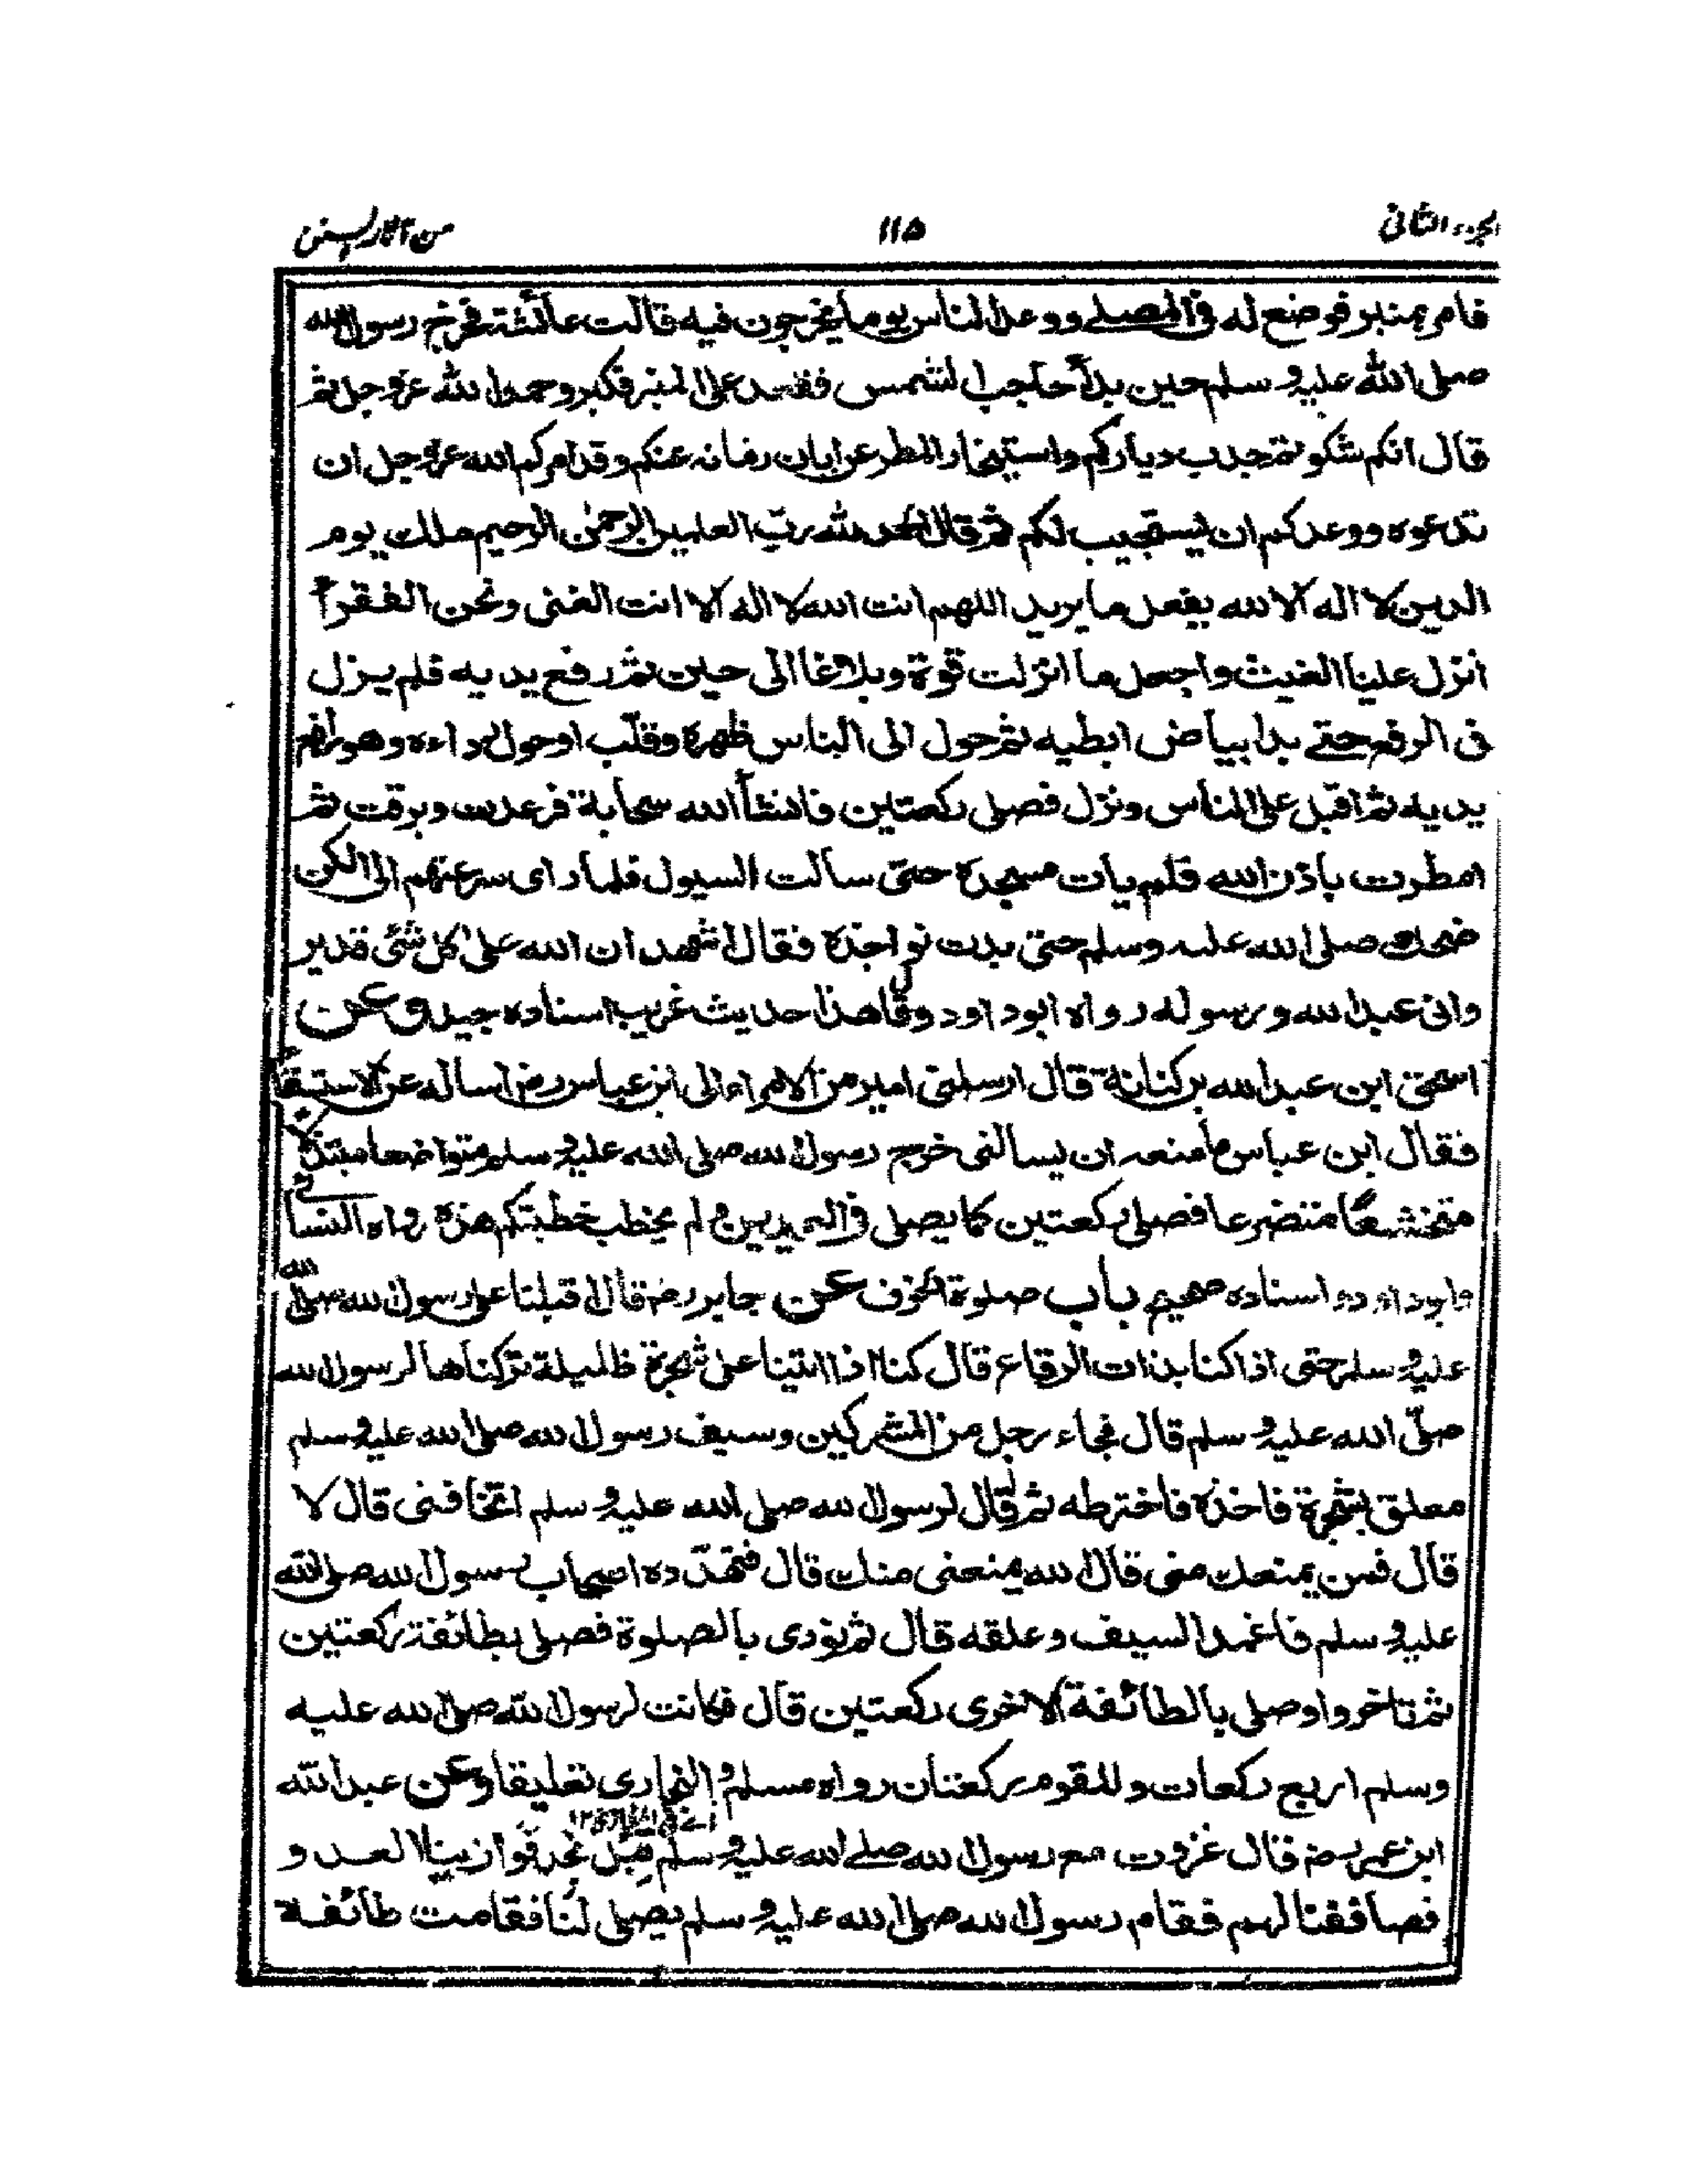 الجزء الثانى ١١٥ من آثار السنن
فامر بمنبر فوضع له فى المصلے ووعد الناس يوما يخرجون فيه قالت عائشة فخرج رسول الله
صلى الله عليه وسلم حين بدأ حاجب الشمس فقعد على المنبر فكبر وحمد الله عز وجل ثم
قال انكم شكوتم جدب دياركم واستيخار المطر عن ابان زمانه عنكم وقد امركم الله عز وجل ان
تدعوه ووعدكم ان يستجيب لكم ثم قال الحمد لله رب العلمين الرحمن الرحيم ملك يوم
الدين لا اله الا الله يفعل ما يريد اللهم انت الله لا اله الا انت الغنى ونحن الفقرآ
أنزل علينا الغيث واجعل ما انزلت قوة وبلاغا الى حين ثم رفع يديه فلم يزل
فى الرفع حتے بدا بياض ابطيه ثم حول الى الناس ظهره وقلّب او حول رداءه وهو رافع
يديه ثم اقبل على الناس ونزل فصلى ركعتين فانشأ الله سحابة فرعدت وبرقت ثم
امطرت باذن الله فلم يات مسجده حتى سالت السيول فلما راى سرعتهم الى الكن
ضحك صلى الله عليه وسلم حتى بدت نواجذه فقال اشهد ان الله على كل شئ قدير
وانى عبد الله ورسوله رواه ابو داود وقال هذا حديث غريب اسناده جيد وعن
اسحق ابن عبد الله بن كنانة قال ارسلنى امير من الامراء الى ابن عباس رض اساله عن الاستسقاء
فقال ابن عباس ما منعه ان يسالنى خرج رسول الله صلى الله عليه وسلم متواضعا مبتذلا
متخشعا متضرعا فصلى ركعتين كما يصلى فى العيدين ولم يخطب خطبتكم هذه رواه النسائى
وابو داود واسناده صحيح باب صلوة الخوف عن جابر رض قال اقبلنا على رسول الله صلى الله
عليه وسلم حتى اذا كنا بذات الرقاع قال كنا اذا اتينا على شجرة ظليلة تركناها لرسول الله
صلّى الله عليه وسلم قال فجاء رجل من المشركين وسيف رسول الله صلى الله عليه وسلم
معلق بشجرة فاخذه فاخترطه ثم قال لرسول الله صلى الله عليه وسلم اتخافنى قال لا
قال فمن يمنعك منى قال الله يمنعنى منك قال فتهدّده اصحاب رسول الله صلى الله
عليه وسلم فاغمد السيف وعلقه قال ثم نودى بالصلوة فصلى بطائفة ركعتين
ثم تاخروا وصلى بالطائفة الاخرى ركعتين قال فكانت لرسول الله صلى الله عليه
وسلم اربع ركعات وللقوم ركعتان رواه مسلم والبخارى تعليقا وعن عبد الله
ابن عمر رض قال غزوت مع رسول الله صلے الله عليه وسلم قبل نجد فوازينا العدو
فصاففنا لهم فقام رسول الله صلى الله عليه وسلم يصلى لنا فقامت طائفة